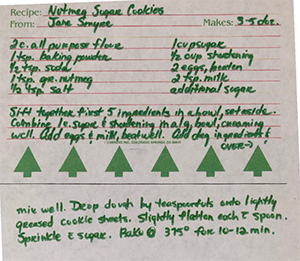 Recipe: Nutmeg Sugar Cookies
From: Jane Smyre Makes: 3-5 doz.
2 c. all purpose flour 1 cup sugar
1 tsp. baking powder ½ cup shortening
½ tsp. soda 2 eggs, beaten
1 tsp. gr. nutmeg 2 tsp. milk
½ tsp. salt additional sugar
Sift together first 5 ingredients in a bowl, set aside.
Combine 1 c. sugar & shortening in a lg. bowl, creaming
well. Add eggs & milk, beat well. Add dry ingredients &
OVER→
mix well. Drop dough by teaspoonfuls onto lightly
greased cookie sheets. Slightly flatten each c̄ spoon.
Sprinkle c̄ sugar. Bake @ 375° for 10-12 min.